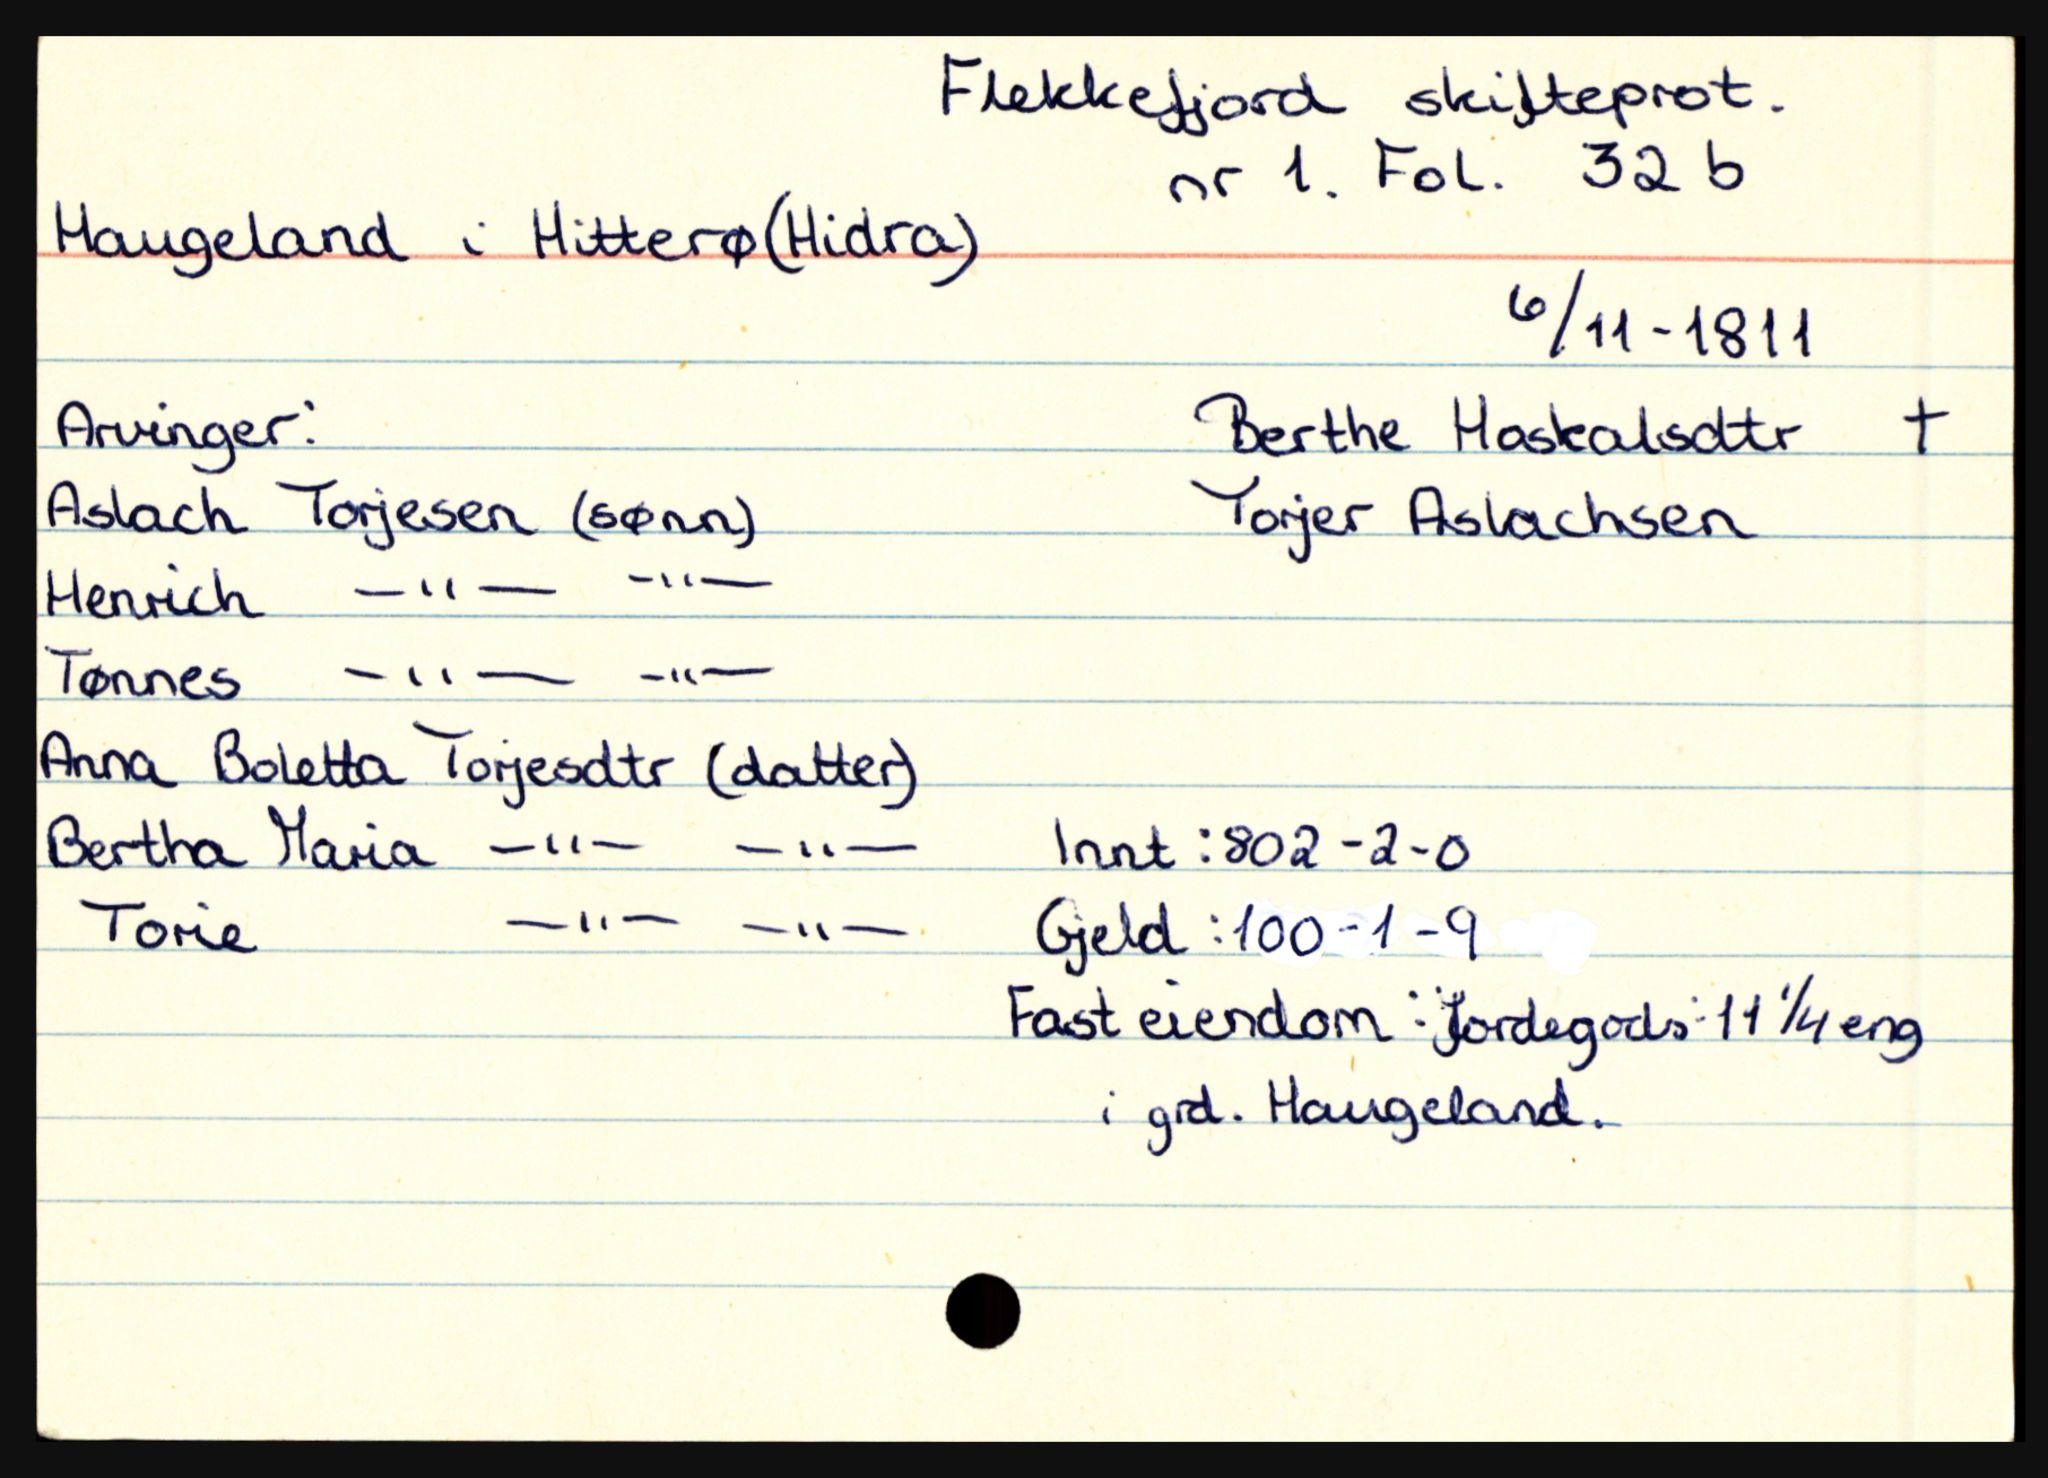 Flekkefjord skifteprot.
nr 1. Fol. 32 b
Haugeland i Hitterø (Hidra)
6/11-1811
Arvinger:
Berthe Haskalsdtr †
Aslach Torjesen (sønn)
Torjer Aslachsen
Henrich —"— —"—
Tønnes —"— —"—
Anna Boletta Torjesdtr (datter)
Bertha Maria —"— —"—
Innt: 802-2-0
Torie —"— —"—
Gjeld: 100-1-9
Fast eiendom: Jordegods: 11 1/4 eng
i grd. Haugeland.